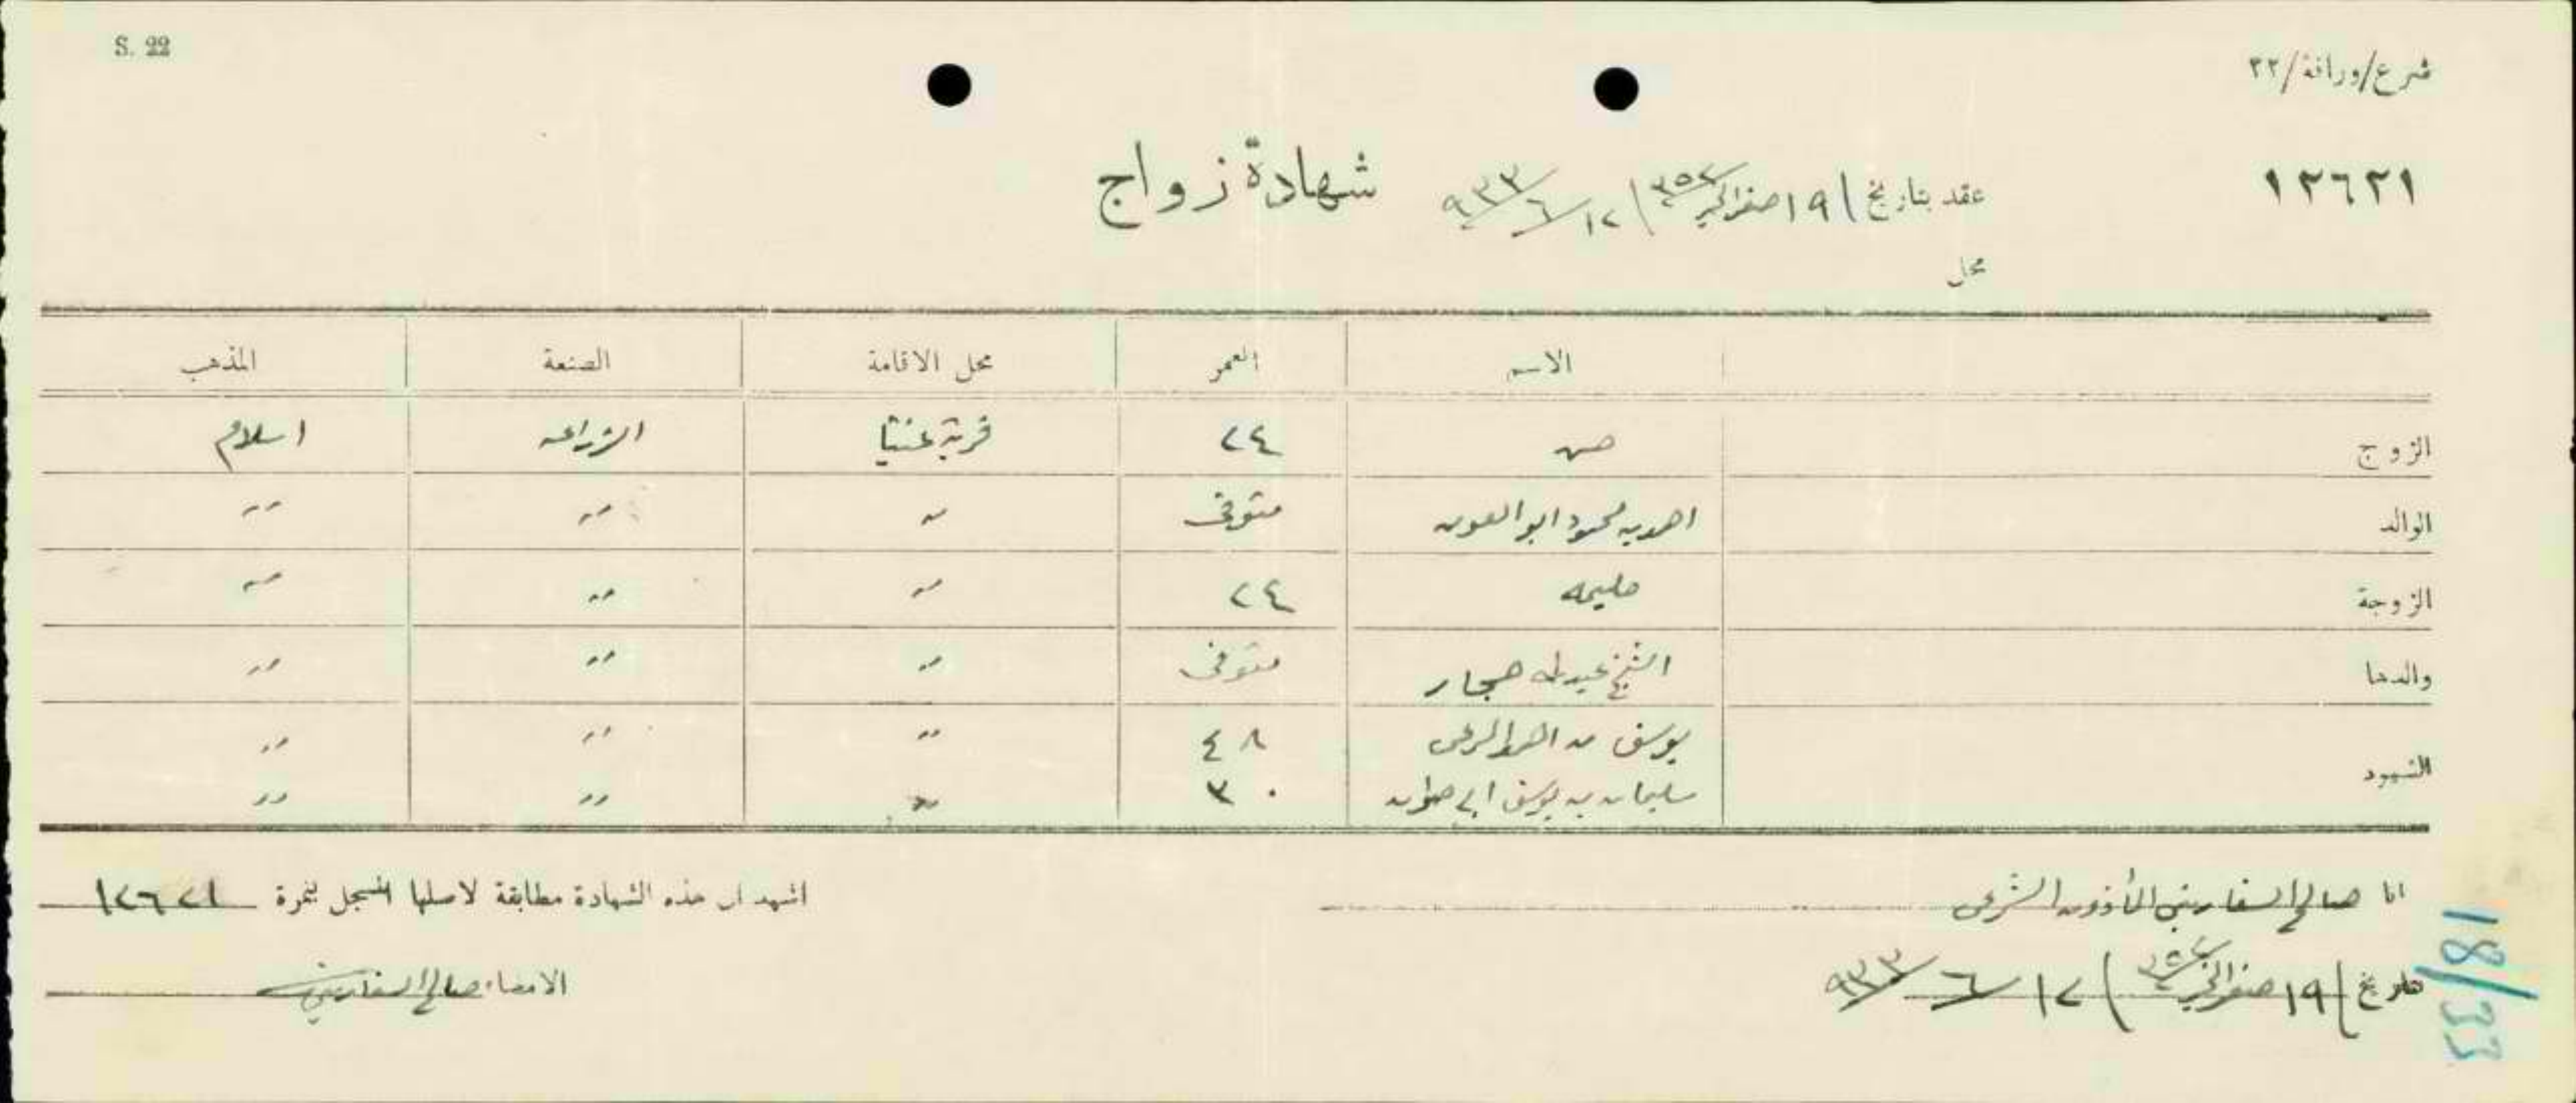 S. 22
شرع/وراقة/٢٢
١٢٦٢١
عقد بتاريخ ١٩ صفر الخير ٣٥٢ ١٢/٦/٩٣٣
شهادة زواج
محل
الاسم العمر محل الاقامة الصنعة المذهب
الزوج حسن ٢٤ قرية عنبتا الزراعه اسلام
الوالد احمد بن محمود ابو العون متوفى " " "
الزوجة حليمه ٢٤ " " "
والدها الشيخ عبد الله حجار متوفى " " "
الشهود يوسف احمد ٤٨ " " "
سليمان بن يوسف ابي ٣٠ " " "
انا صالح السفاريني المأذون الشرعي
اشهد ان هذه الشهادة مطابقة لاصلها المسجل بنمرة ١٢٦٢١
تاريخ ١٩ صفر الخير ٣٥٢ ١٢/٦/٩٣٣
الامضاء صالح السفاريني
18/33